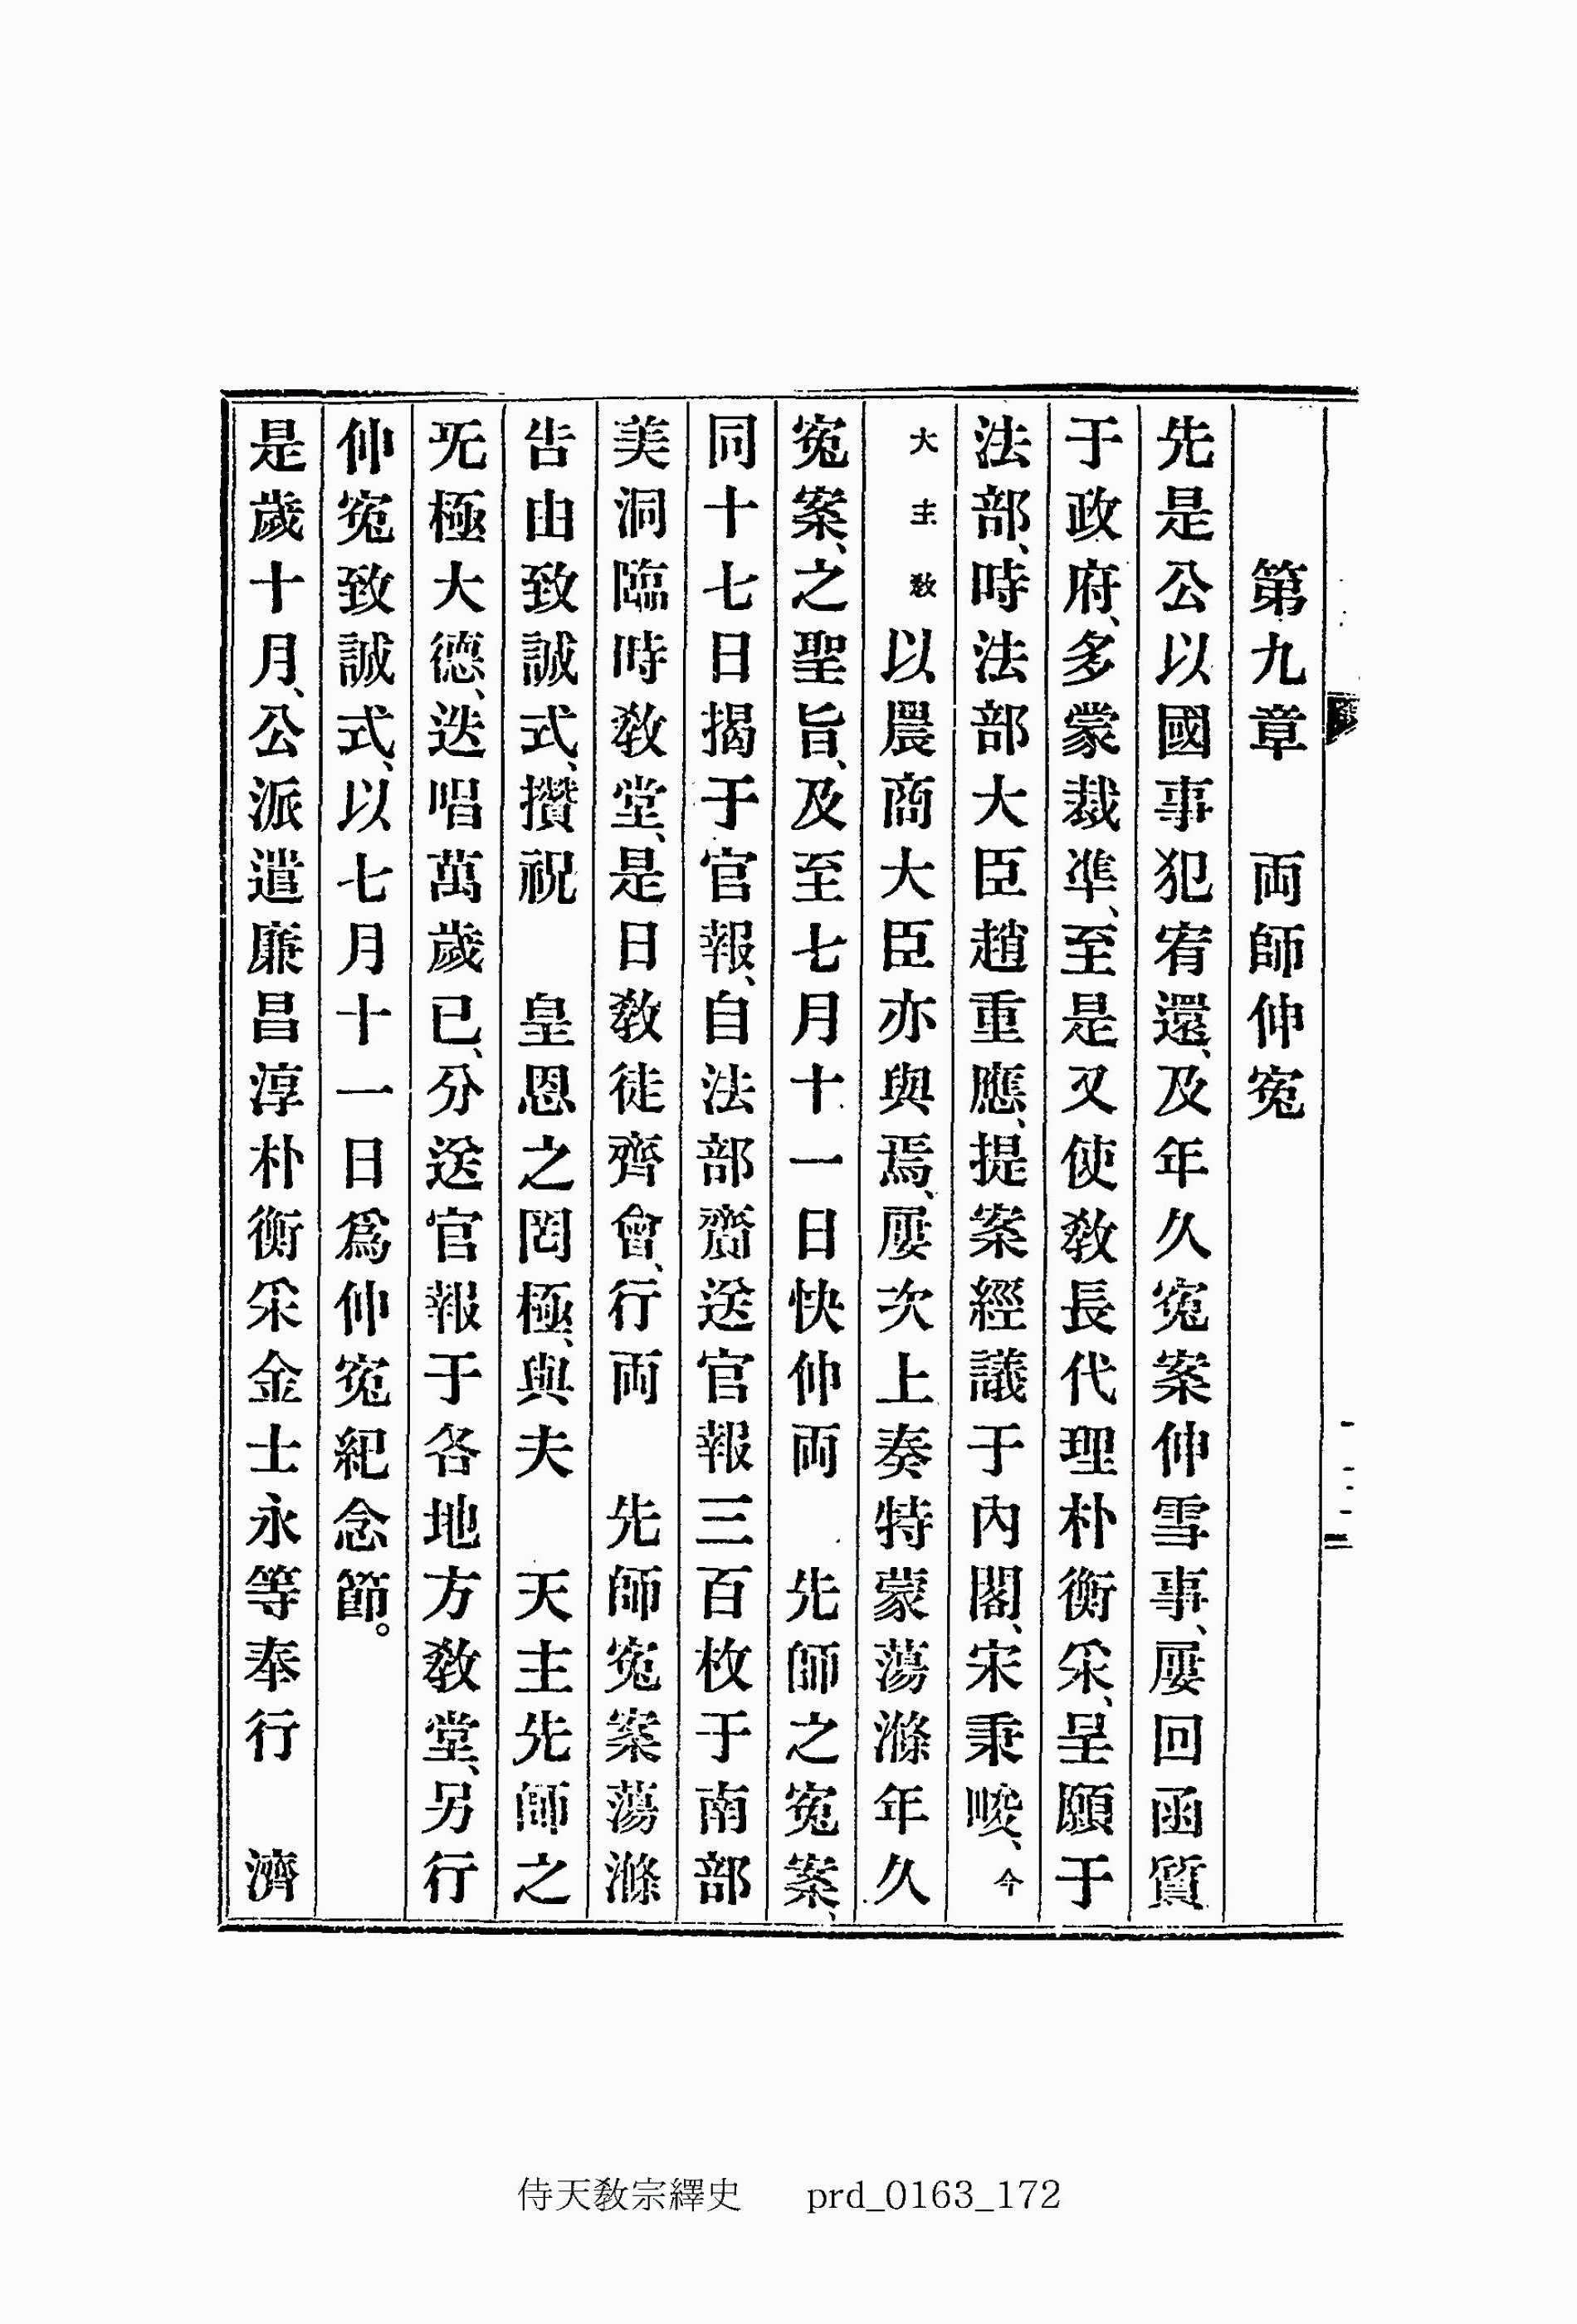 第九章　両師伸寃
先是公以國事犯宥還、及年久寃案伸雪事、屢回函質
于政府、多蒙裁准、至是又使敎長代理朴衡采、呈願于
法部、時法部大臣趙重應、提案經議于內閣、宋秉畯、今
大主敎以農商大臣亦與焉、屢次上奏特蒙蕩滌年久
寃案、之聖旨、及至七月十一日快伸両　先師之寃案、
同十七日揭于官報、自法部齎送官報三百枚于南部
美洞臨時敎堂、是日敎徒齊會、行両　先師寃案蕩滌
告由致誠式、攢祝　皇恩之罔極、與夫　天主先師之
旡極大德、迭唱萬歲已、分送官報于各地方敎堂、另行
伸寃致誠式、以七月十一日爲伸寃紀念節。
是歲十月、公派遣廉昌淳朴衡采金士永等奉行　濟
侍天敎宗繹史　prd_0163_172